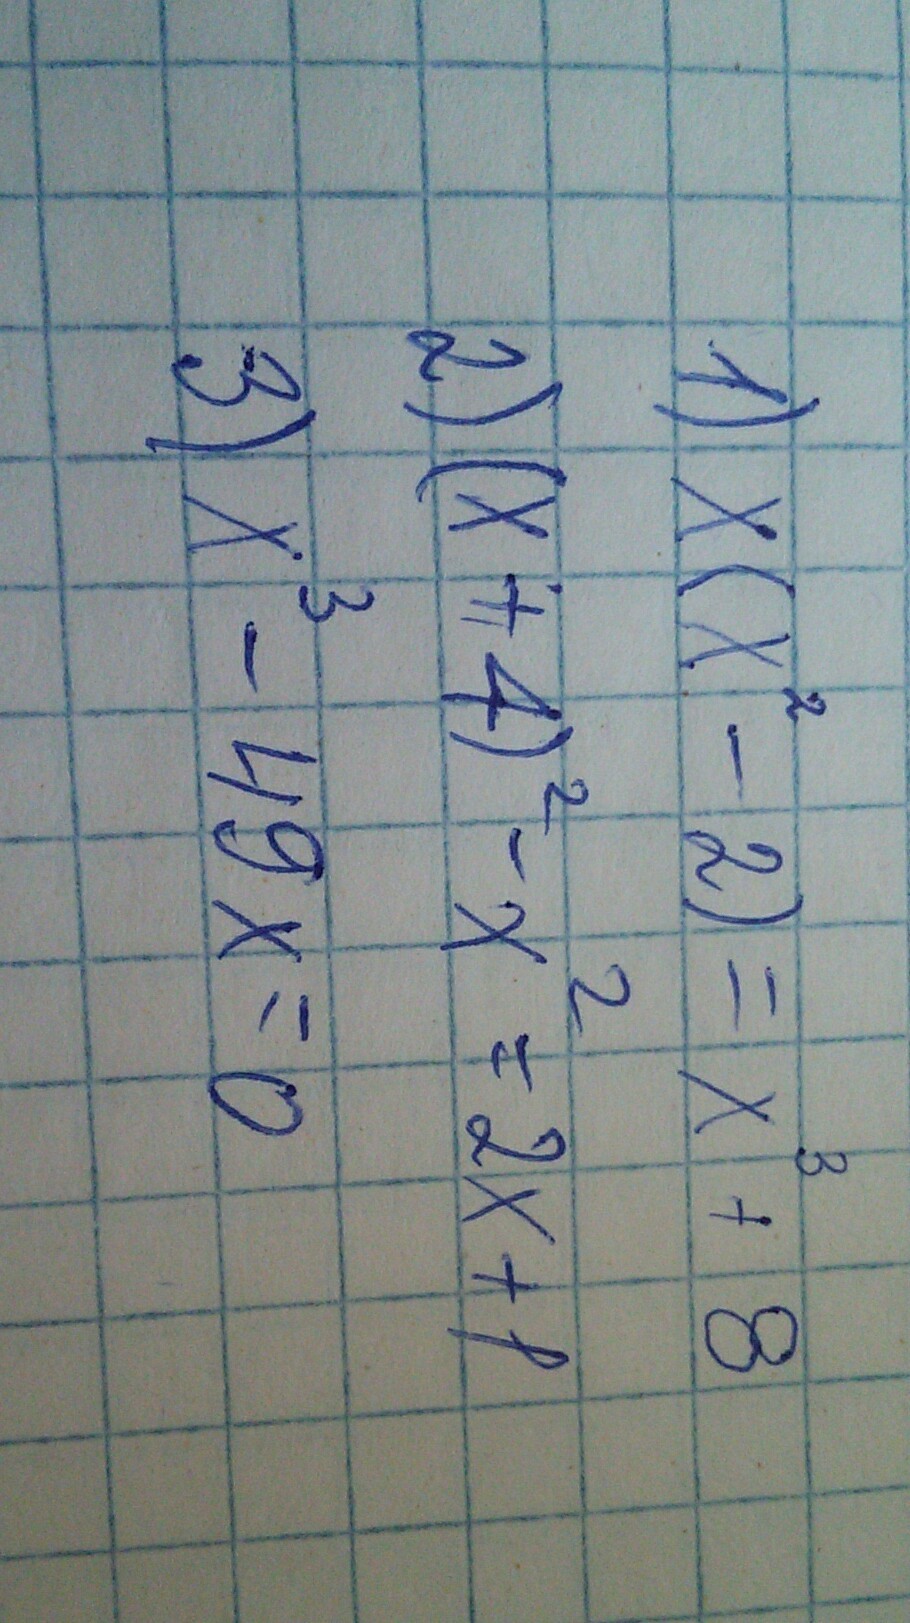 1) x(x² - 2) = x³ + 8
2) (x + 4)² - x² = 2x + 1
3) x³ - 49x = 0